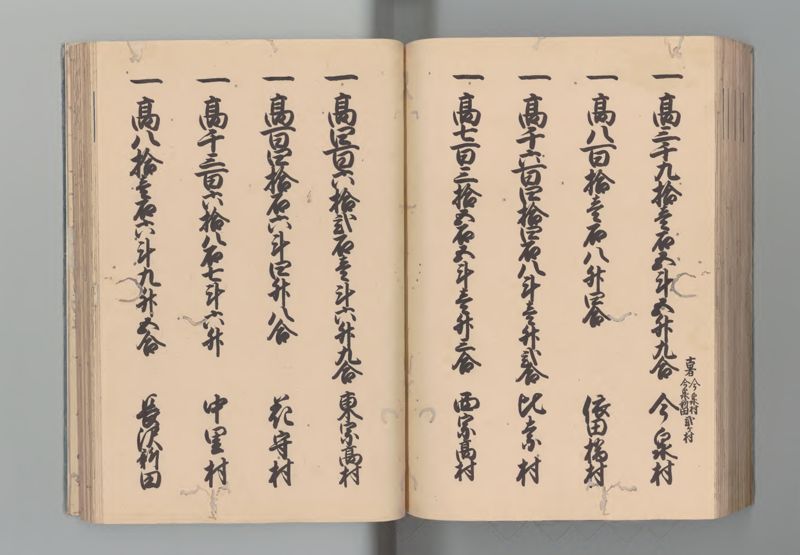 古者 今泉村 今泉新田 弐ヶ村
一 高三千九拾壱石五斗五升九合 今泉村
一 高八百拾壱石八升四合 依田橋村
一 高千六百四拾四石八斗壱升弐合 比奈村
一 高七百三拾五石五斗壱升三合 西宗高村
一 高四百六拾弐石壱斗六升九合 東宗高村
一 高百四拾石六斗四升八合 花守村
一 高千三百六拾八石七斗六升 中里村
一 高八拾壱石六斗九升五合 長沢新田